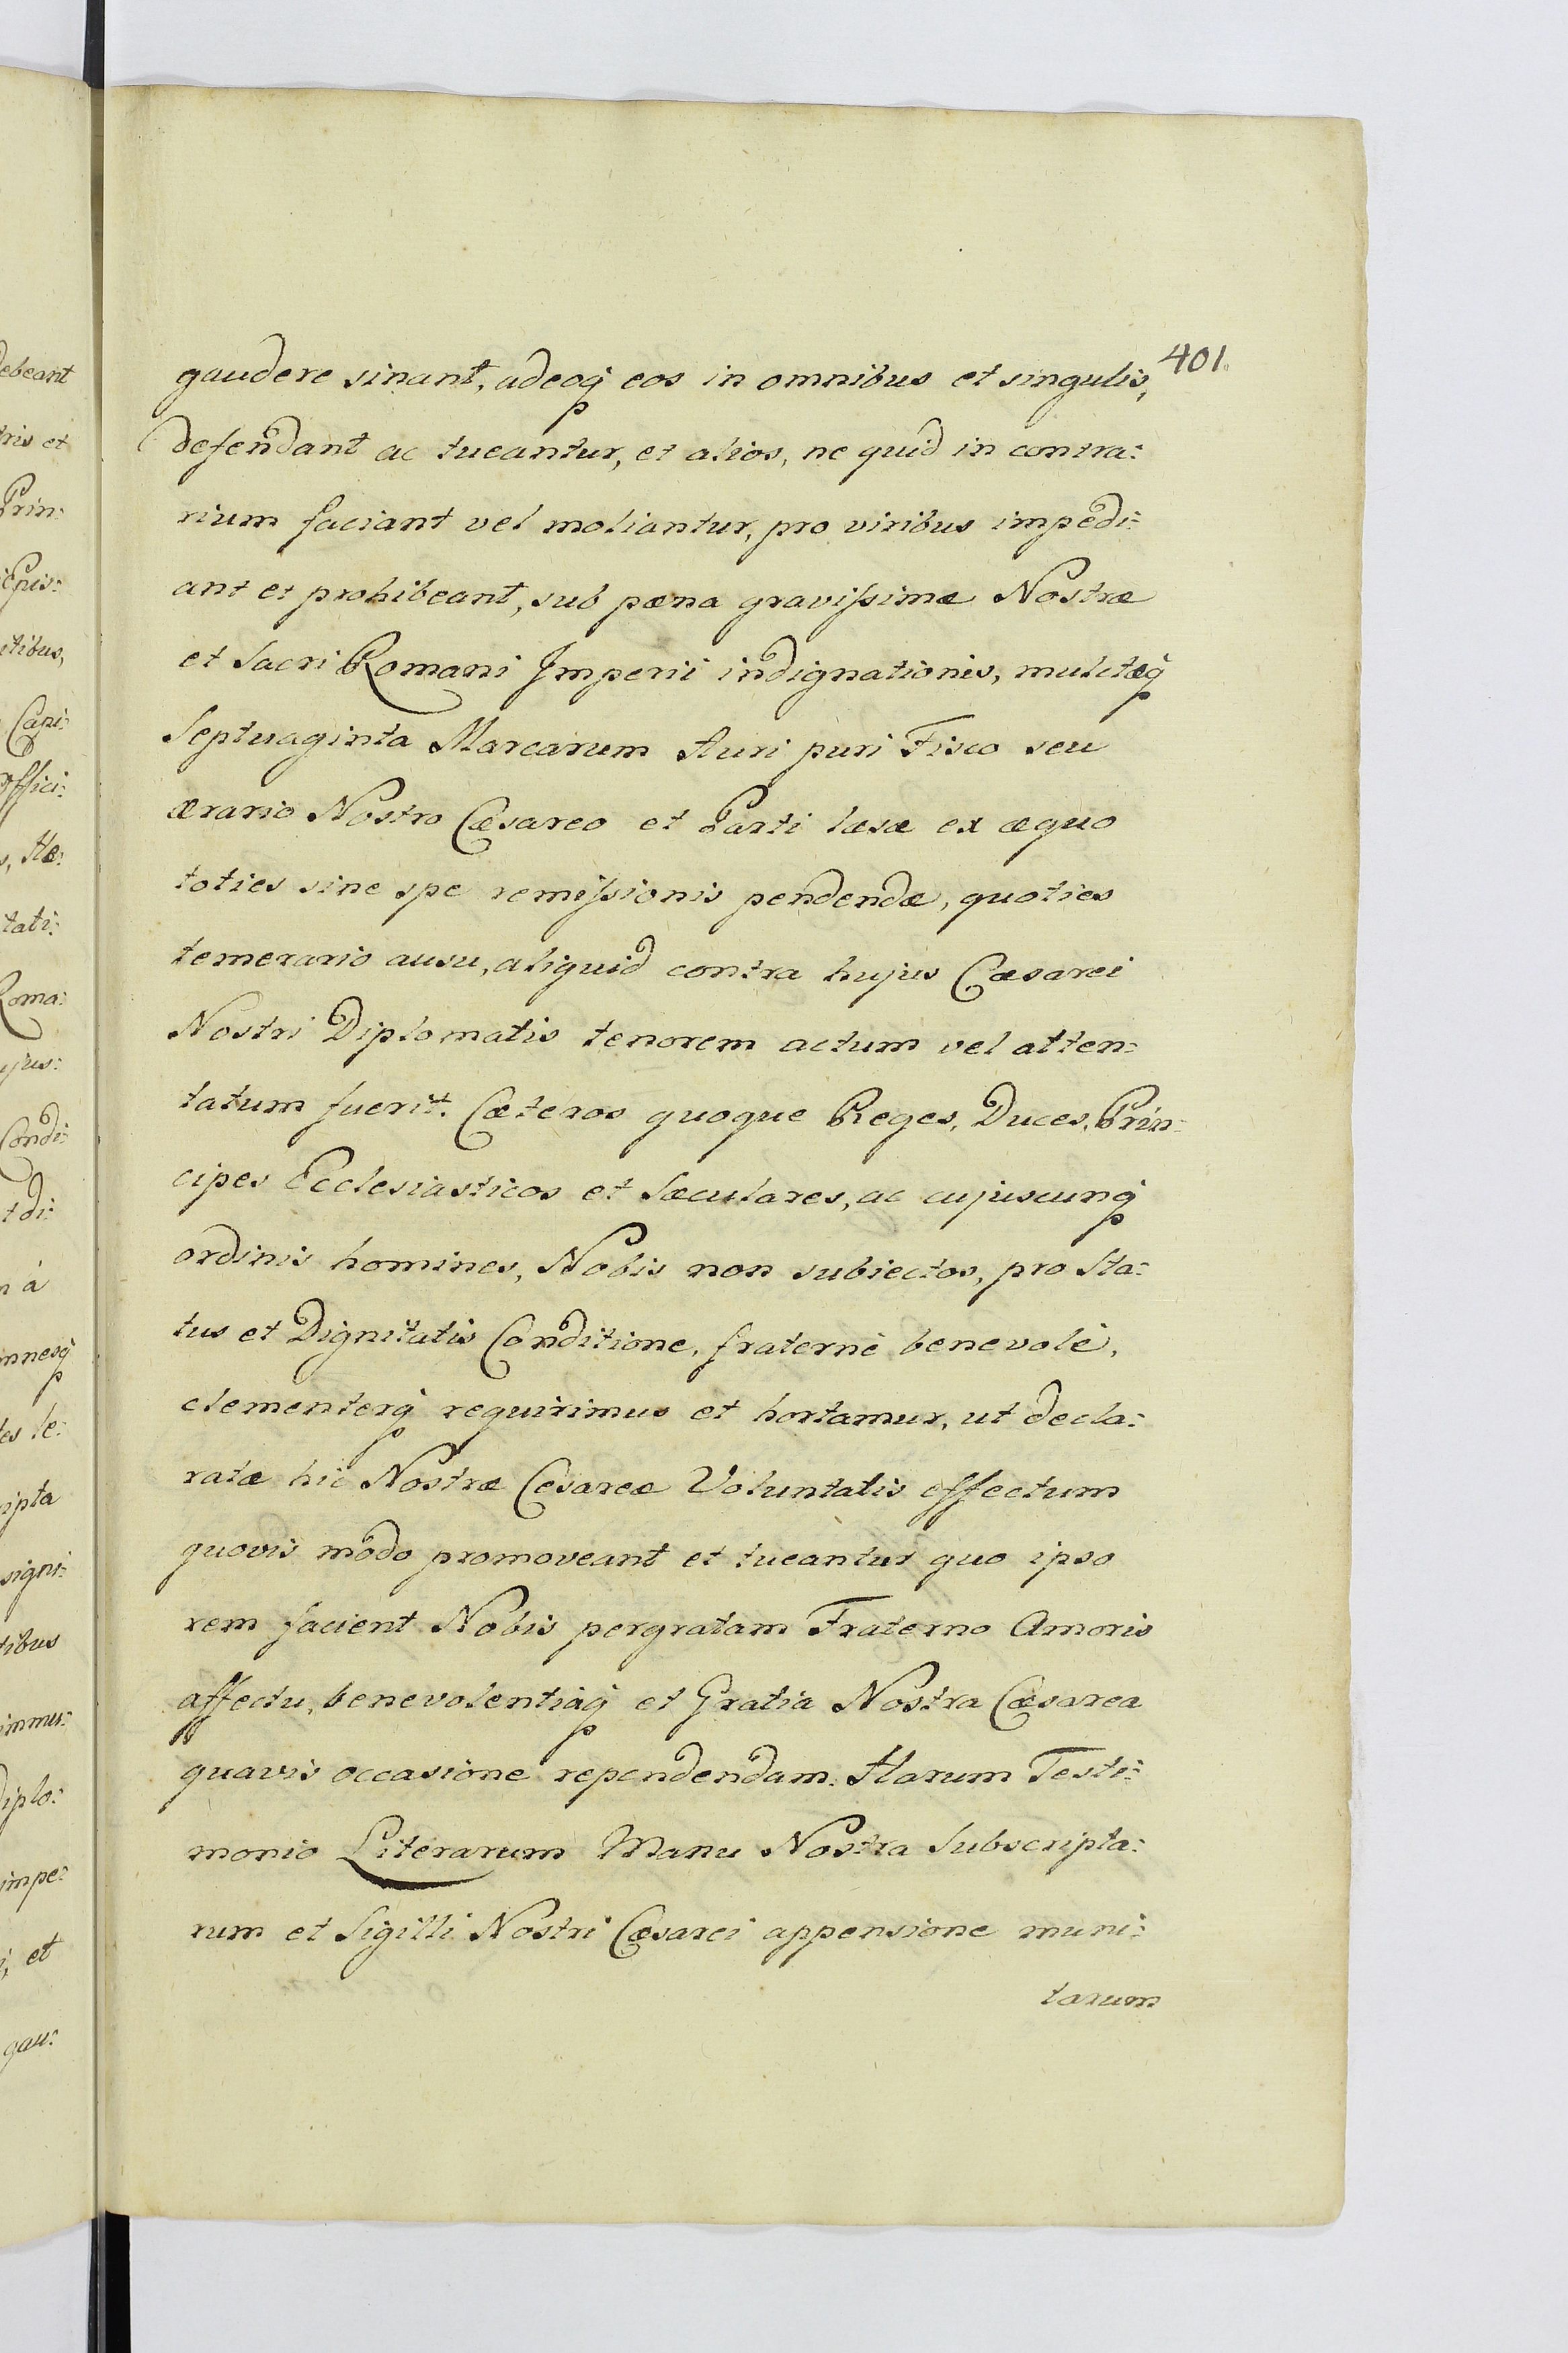 401.
gaudere sinant, adeoq́ eos in omnibus et singulis,
defendant ac tueantur, et alios, ne quid in contra:
rium faciant vel moliantur, pro viribus impedi:
ant et prohibeant, sub pæna gravissimæ Nostræ
et Sacri Romani Imperii indignationis, mulctæq́
Septuaginta Marcarum Auri puri Fisco seu
ærario Nostro Cæsareo et Parti læsæ ex æquo
toties sine spe remissionis pendendæ, quoties
temerario ausu, aliquid contra hujus Cæsarei
Nostri Diplomatis tenorem actum vel atten:
tatum fuerit. Cæteros quoque Reges, Duces, Prin:
cipes Ecclesiasticos et Sæculares, ac cujuscunq́
ordinis homines, Nobis non subiectos, pro Sta:
tus et Dignitatis Conditione, fraternè benevolè,
clementerq́ requirimus et hortamur, ut decla:
ratæ hic Nostræ Cesareæ Voluntatis effectum
quovis modo promoveant et tueantur quo ipso
rem facient Nobis pergratam Fraterno Amoris
affectu, benevolentiaq́ et Gratia Nostra Cæsarea
quavis occasione rependendam. Harum Testi:
monio Literarum Manu Nostra Subscripta:
rum et Sigilli Nostri Cæsarei appensione muni:
tarum
ebeant
tris et
Prin:
itibus,
Capi:
offici:
tati:
Roma:
Condi:
t di:
n á
nnesq́
ipta
signi:
tibus
immu:
Diplo:
impe:
i, et
gau: